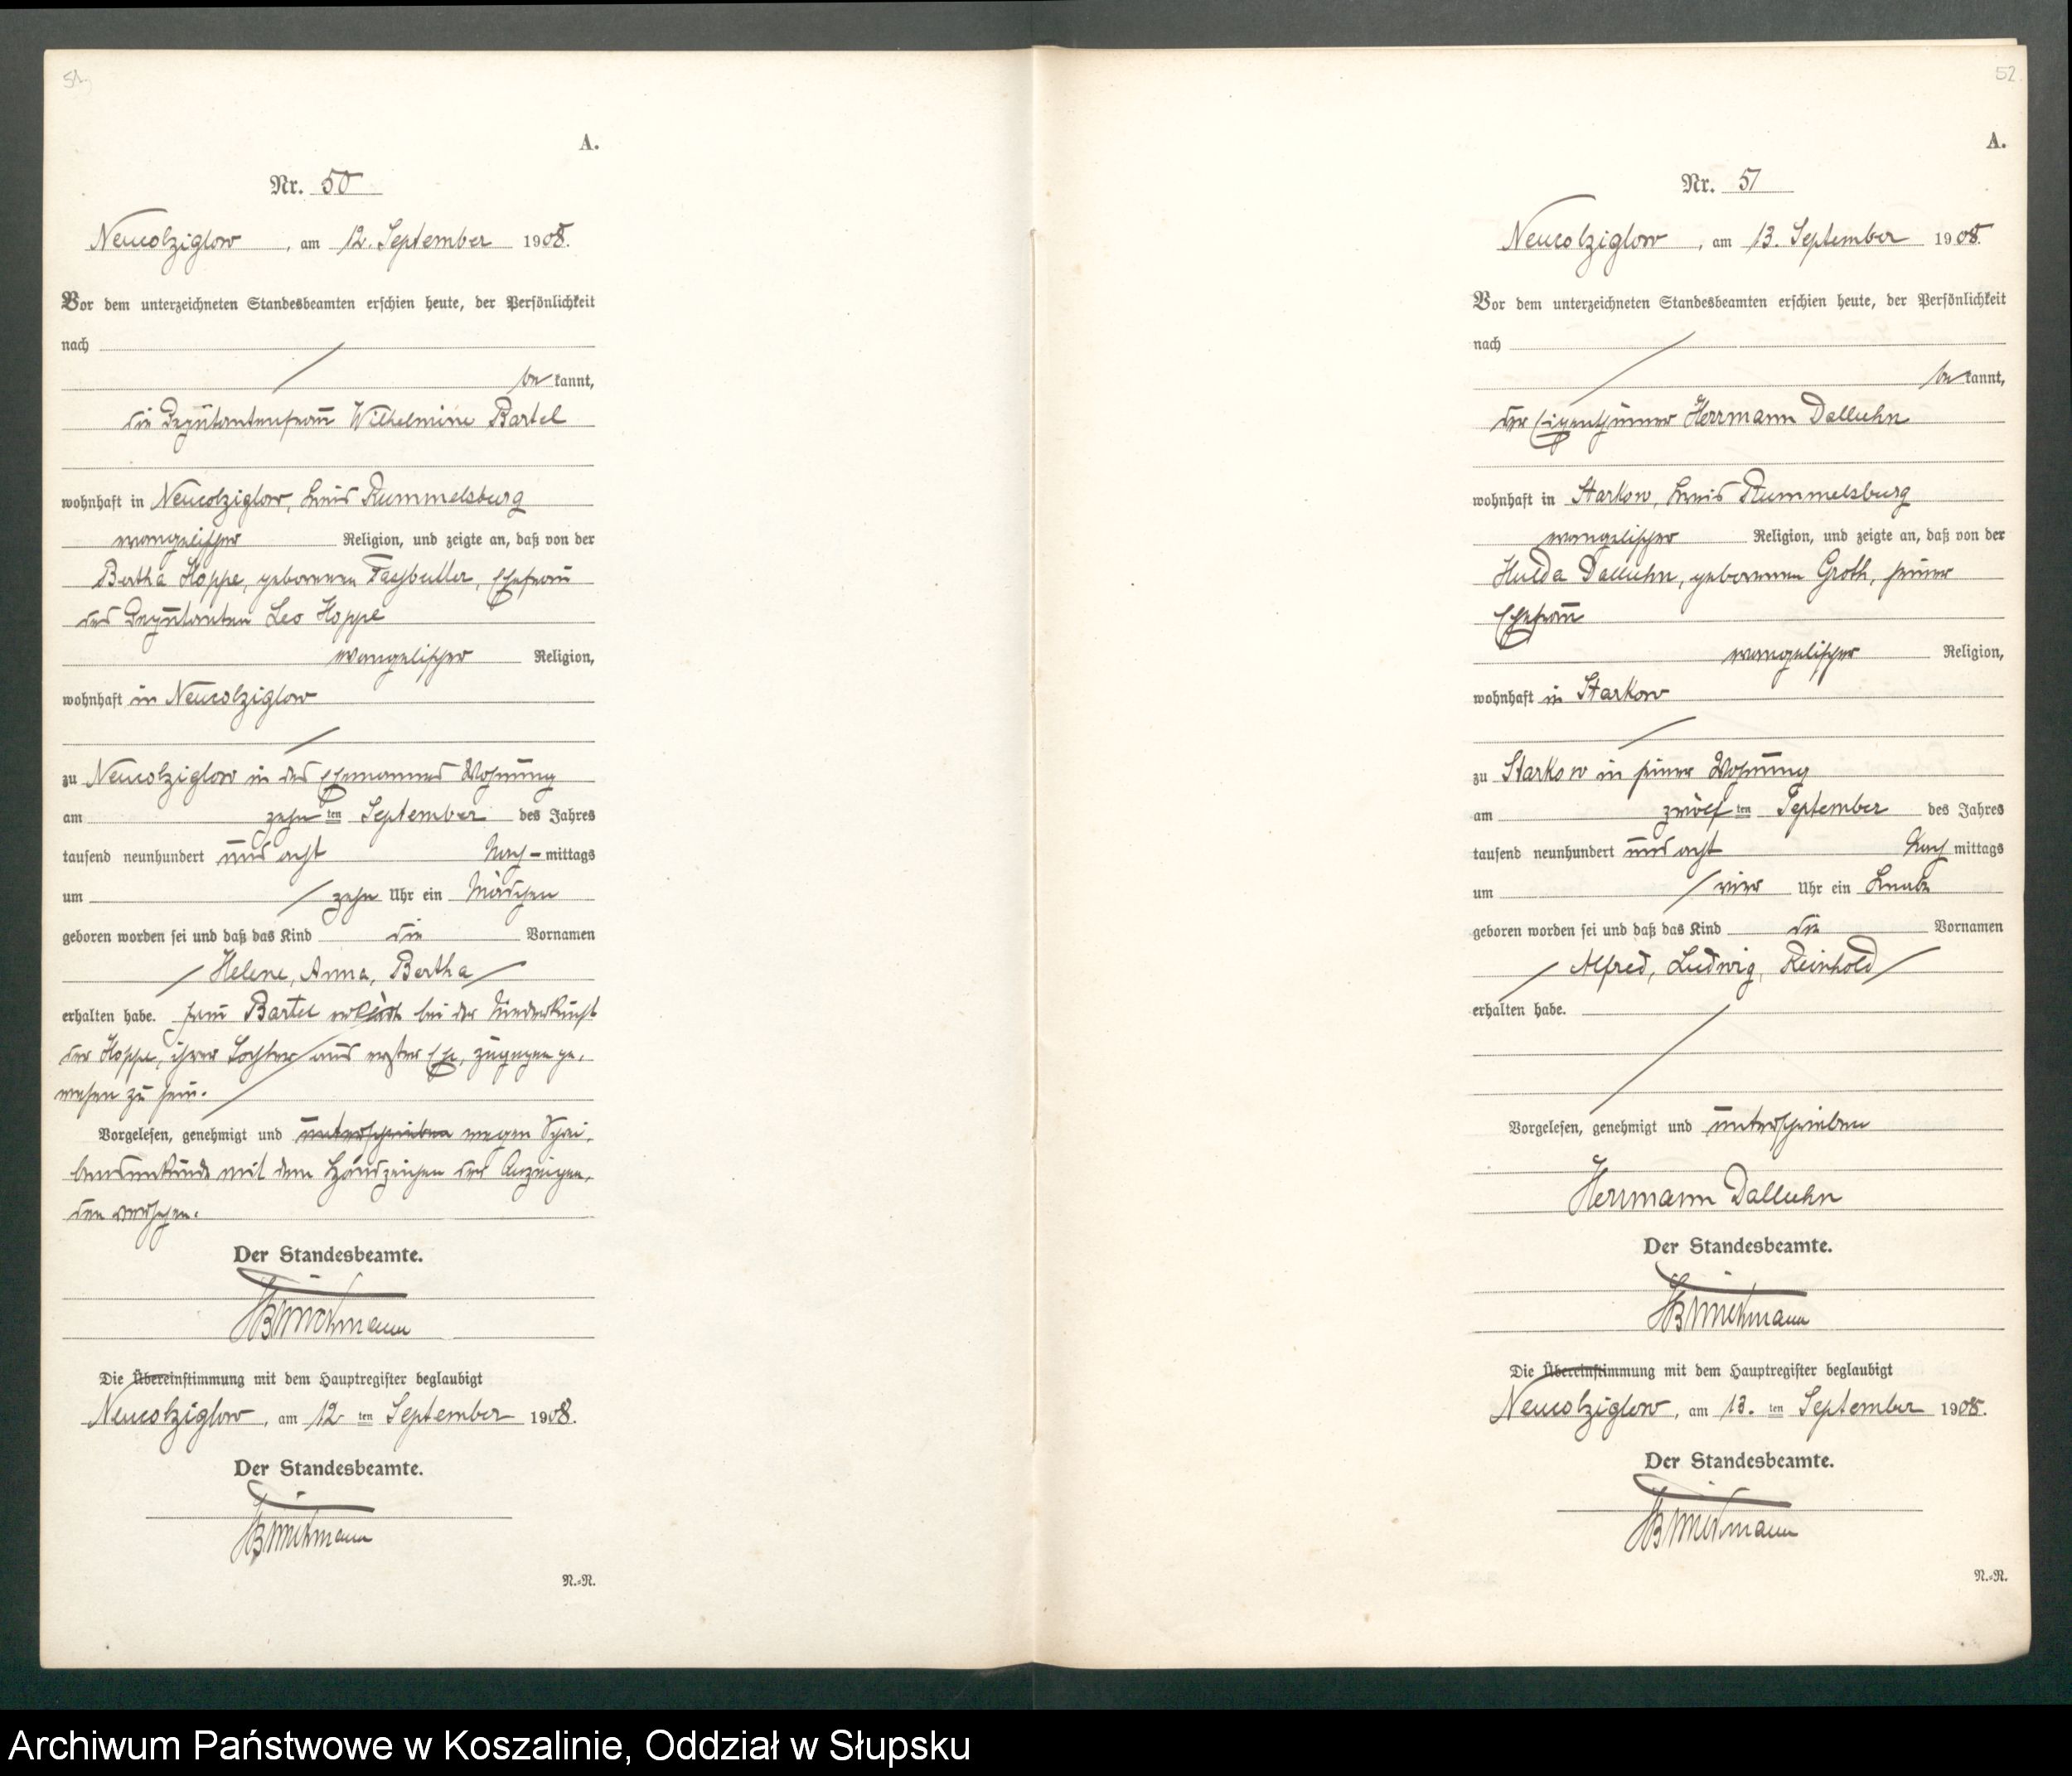 51
A.
Nr. 50
Neucolziglow, am 12. September 1908.
Vor dem unterzeichneten Standesbeamten erschien heute, der Persönlichkeit
nach
be kannt,
die Deputantenfrau Wilhelmine Bartel
wohnhaft in Neucolziglow, Kreis Rummelsburg
evangelischer Religion, und zeigte an, daß von der
Bertha Hoppe, geborenen Taschbuller, Ehefrau
des Deputanten Leo Hoppe
evangelischer Religion,
wohnhaft in Neucolziglow
zu Neucolziglow in des Ehemannes Wohnung
am zehn ten September des Jahres
tausend neunhundert und acht Nach-mittags
um zehn Uhr ein Mädchen
geboren worden sei und daß das Kind die Vornamen
Helene, Anna, Bertha
erhalten habe. Frau Bartel erklärt bei der Niederkunft
der Hoppe, ihrer Tochter aus erster Ehe, zugegen ge-
wesen zu sein.
Vorgelesen, genehmigt und unterschrieben wegen Schrei-
bensunkunde mit dem Handzeichen der Anzeigen-
den versehen.
Der Standesbeamte.
Die Übereinstimmung mit dem Hauptregister beglaubigt
Neucolziglow, am 12 ten September 1908.
Der Standesbeamte.
N.=N.
52.
A.
Nr. 51
Neucolziglow, am 13. September 1908.
Vor dem unterzeichneten Standesbeamten erschien heute, der Persönlichkeit
nach
be kannt,
der Eigenthümer Herrmann Балuhn
wohnhaft in Starkow, Kreis Rummelsburg
evangelischer Religion, und zeigte an, daß von der
Hulda Dalluhn, geborenen Groth, seiner
Ehefrau
evangelischer Religion,
wohnhaft in Starkow
zu Starkow in seiner Wohnung
am zwölf ten September des Jahres
tausend neunhundert und acht Nach mittags
um vier Uhr ein Knabe
geboren worden sei und daß das Kind die Vornamen
Alfred, Ludwig, Reinhold
erhalten habe.
Vorgelesen, genehmigt und unterschrieben
Herrmann Dalluhn
Der Standesbeamte.
Die Übereinstimmung mit dem Hauptregister beglaubigt
Neucolziglow, am 13. ten September 1908.
Der Standesbeamte.
N.=N.
Archiwum Państwowe w Koszalinie, Oddział w Słupsku